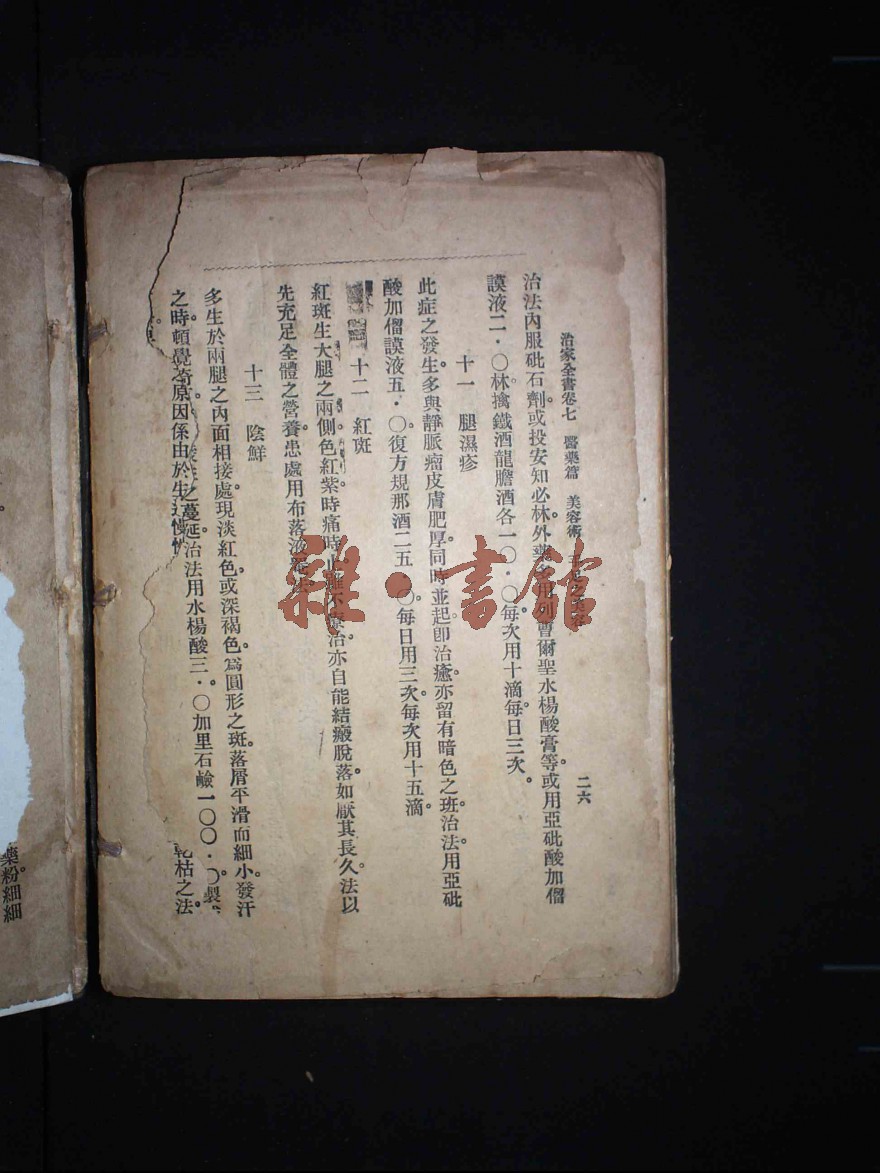 治家全書卷七　醫藥篇　美容術
二六
治法內服砒石劑或投安知必林外藥用列曹爾聖水楊酸膏等或用亞砒酸加僧
謨液二·〇林擒鐵酒龍膽酒各一〇·〇每次用十滴每日三次。
十一　腿濕疹
此症之發生多與靜脈瘤皮膚肥厚同時並起卽治癒亦留有暗色之班治法用亞砒
酸加僧謨液五·〇復方規那酒二五·〇每日用三次每次用十五滴。
十二　紅斑
紅斑生大腿之兩側色紅紫時痛時止雖不療治亦自能結瘢脫落如厭其長久法以
先充足全體之營養患處用布落液
十三　陰鮮
多生於兩腿之內面相接處現淡紅色或深褐色爲圓形之斑落屑平滑而細小發汗
之時頓覺原因係由於生之蔓延治法用水楊酸三·〇加里石鹼一〇〇·〇製
乾枯之法
藥粉細細
雜·書館